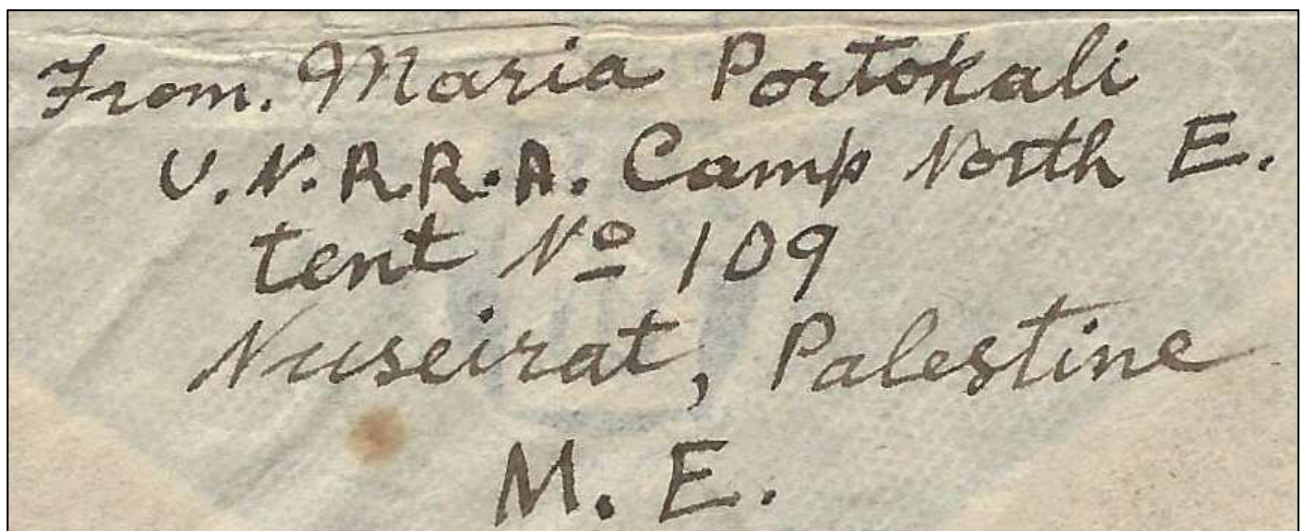 From. Maria Portokali
U.N.R.R.A. Camp North E.
tent Nº 109
Nuseirat, Palestine
M. E.